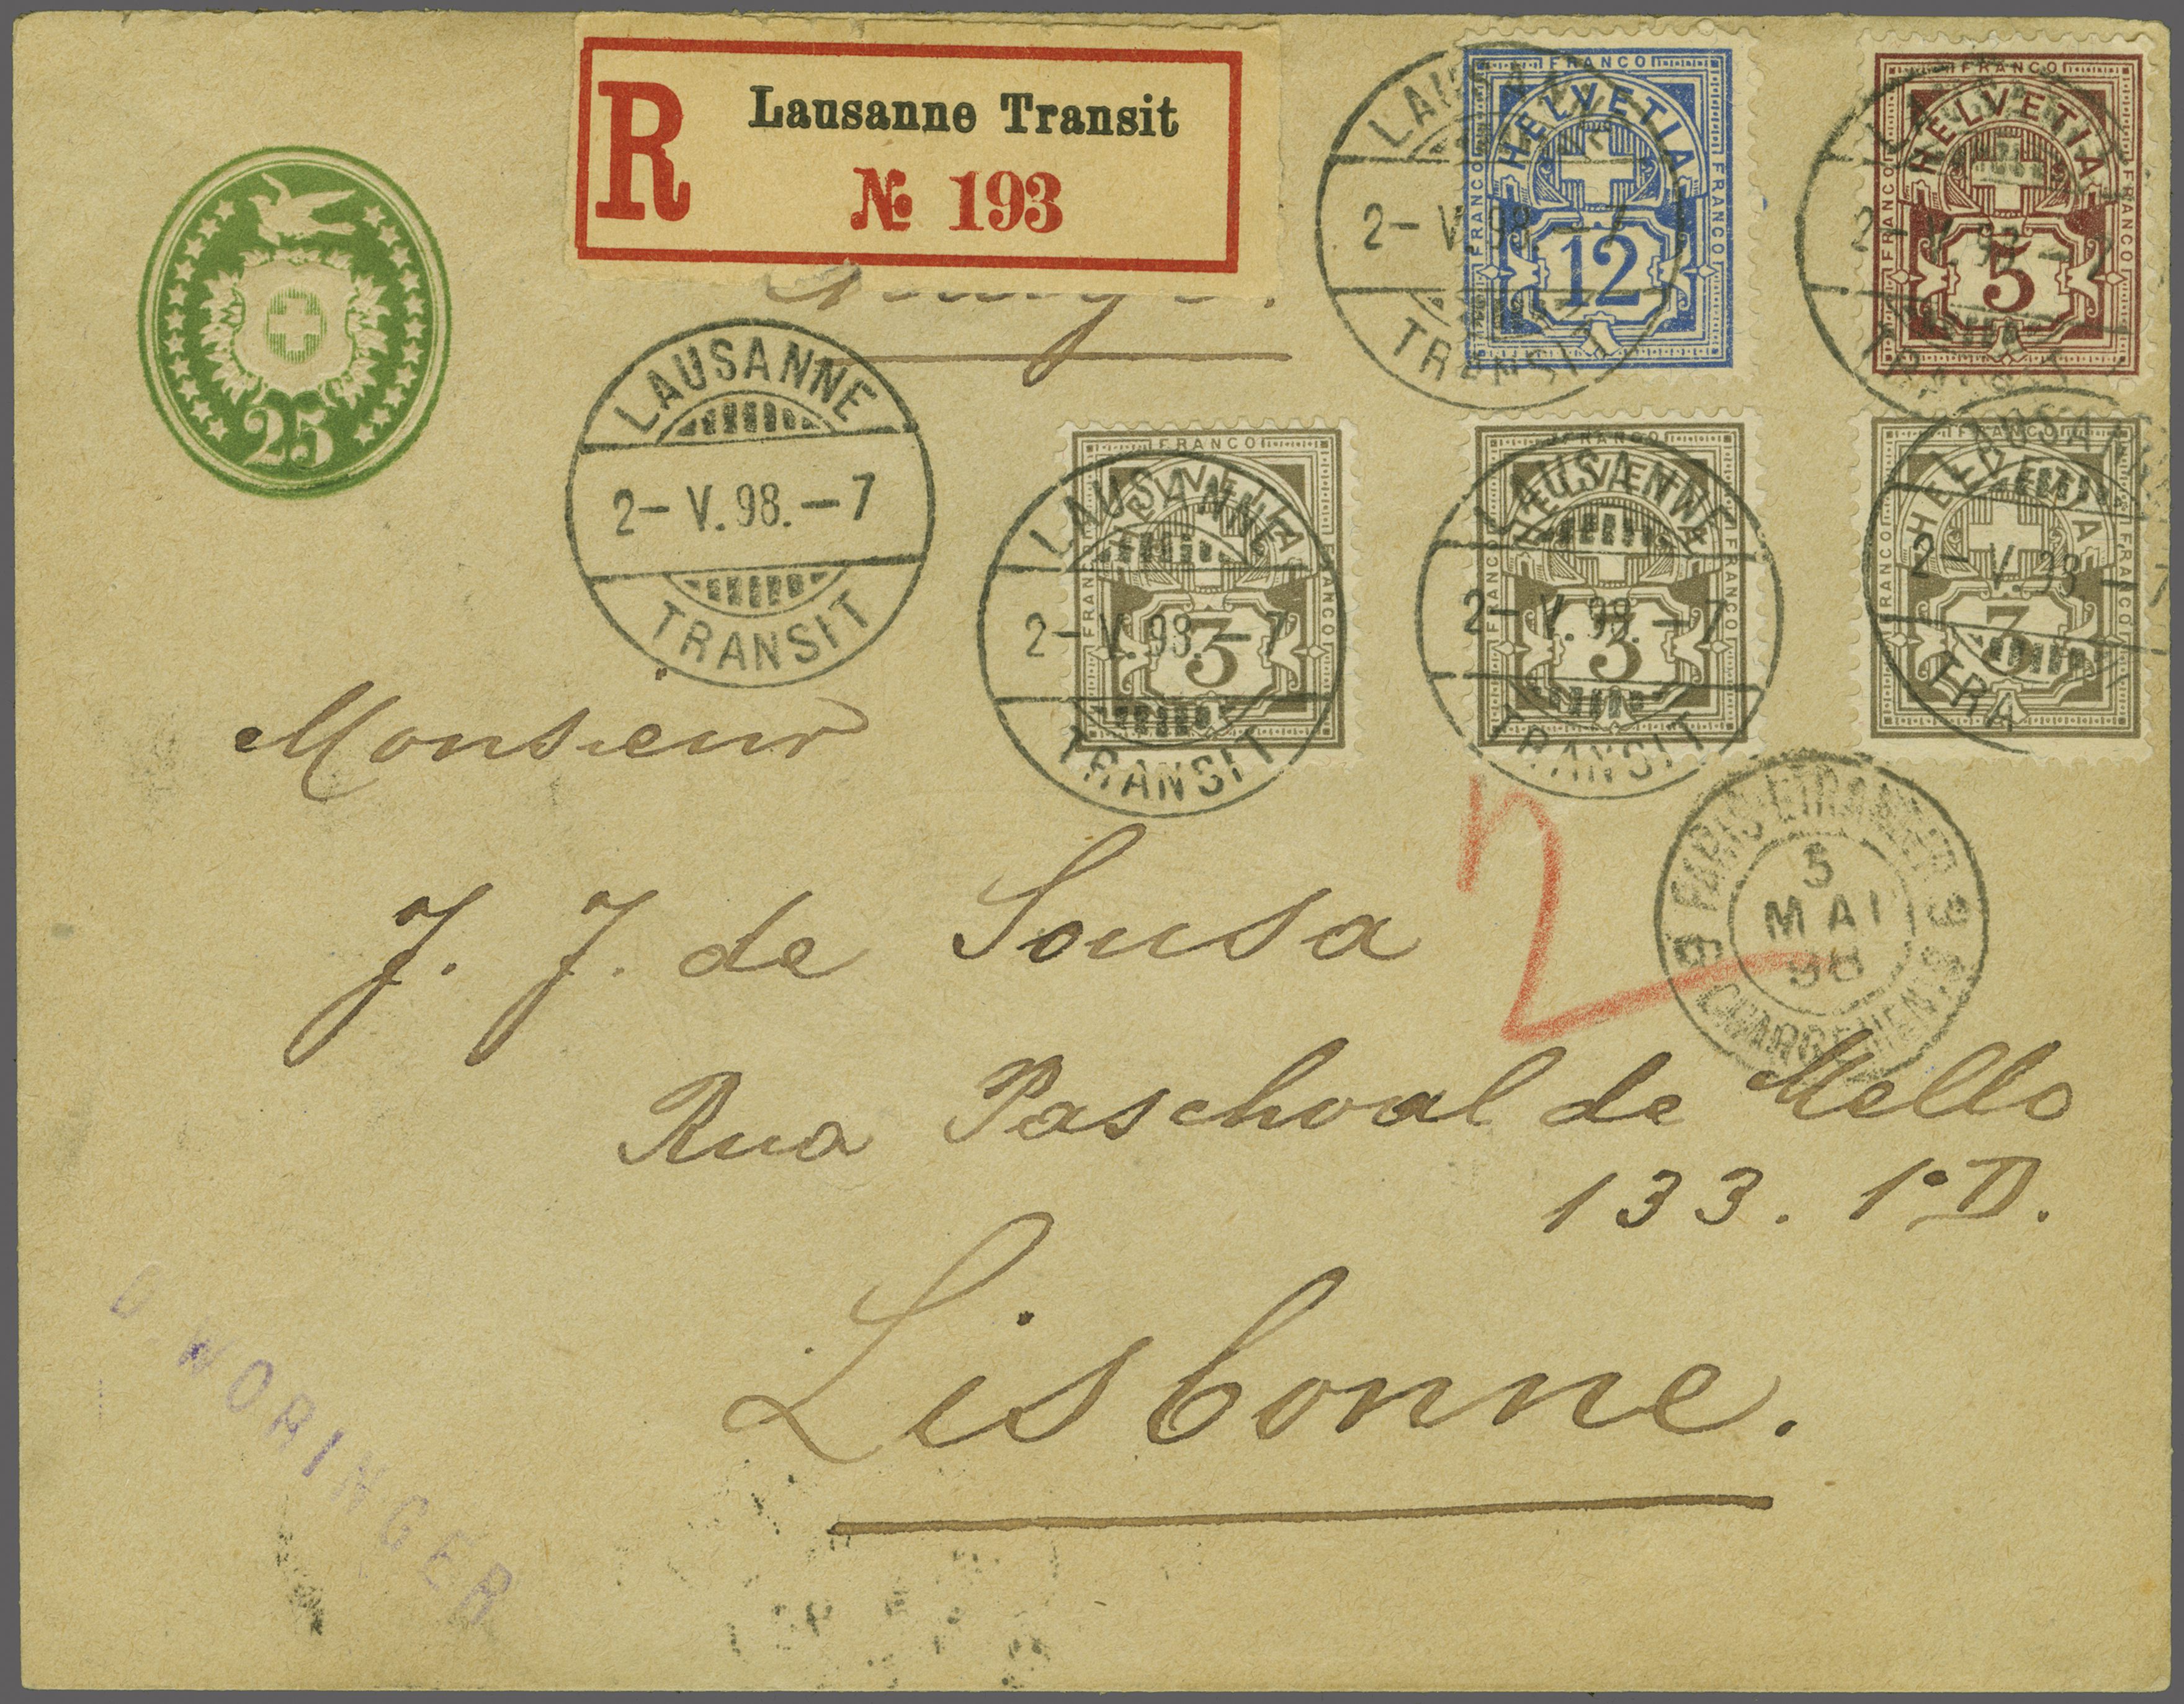 R
Lausanne Transit
№ 193
25
LAUSANNE
2- V.98.-7
TRANSIT
FRANCO
HELVETIA
FRANCO
FRANCO
12
LAUSANNE
2- V.98.-7
TRANSIT
FRANCO
HELVETIA
FRANCO
FRANCO
5
2- V.98.-7
TRANSIT
FRANCO
HELVETIA
FRANCO
FRANCO
3
LAUSANNE
2- V.98.-7
TRANSIT
FRANCO
HELVETIA
FRANCO
FRANCO
3
LAUSANNE
2- V.98.-7
TRANSIT
FRANCO
HELVETIA
FRANCO
FRANCO
3
LAUSANNE
2- V.98.-7
TRA
2
PARIS ETRANGER
5
MAI
98
CHARGEMENTS
Monsieur
J. J. de Sousa
Rua Paschoal de Mello
133. 1º D.
Lisbonne.
WORINGER